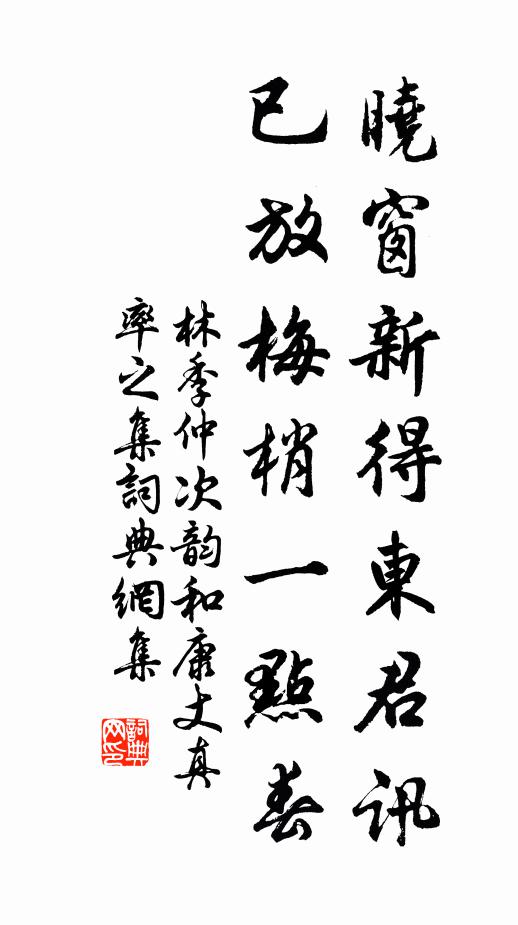 曉窗新得東君訊
已放梅梢一點春
林季仲次韵和康丈真
率之集詞典網集
詞典
网印